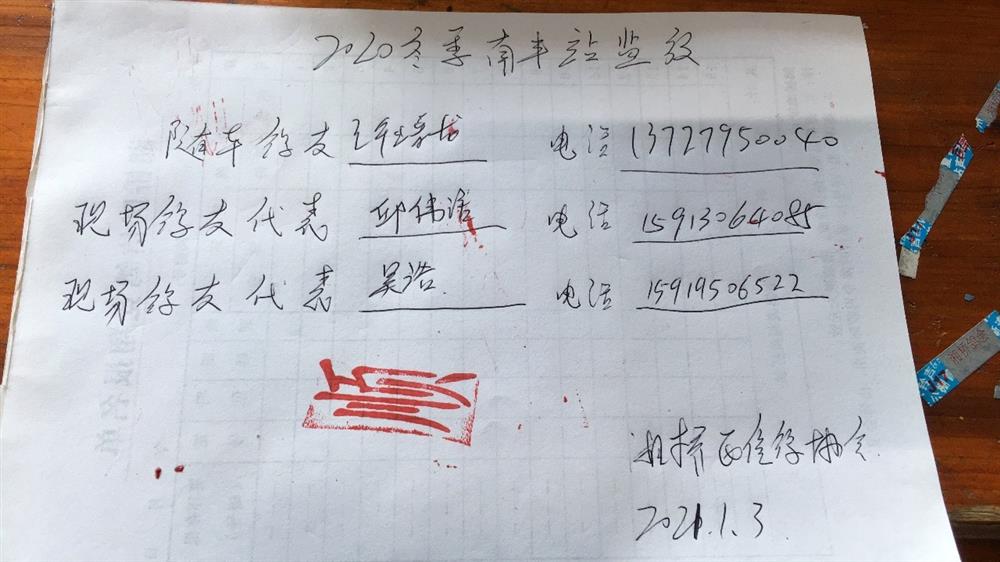 2020冬季南丰站监放
随车鸽友 电话 13727950040
现场鸽友代表 邱伟浩 电话 15913064085
现场鸽友代表 吴浩 电话 15919506522
信鸽协会
2021.1.3